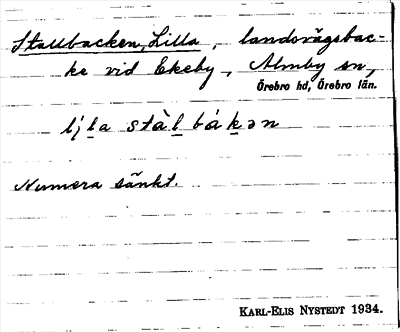 Stallbacken, Lilla, landsvägsbac-
ke vid Ekeby, Almby sn,
Örebro hd, Örebro län.
lı̨la stàl bákən
Numera sänkt.
KARL-ELIS NYSTEDT 1934.